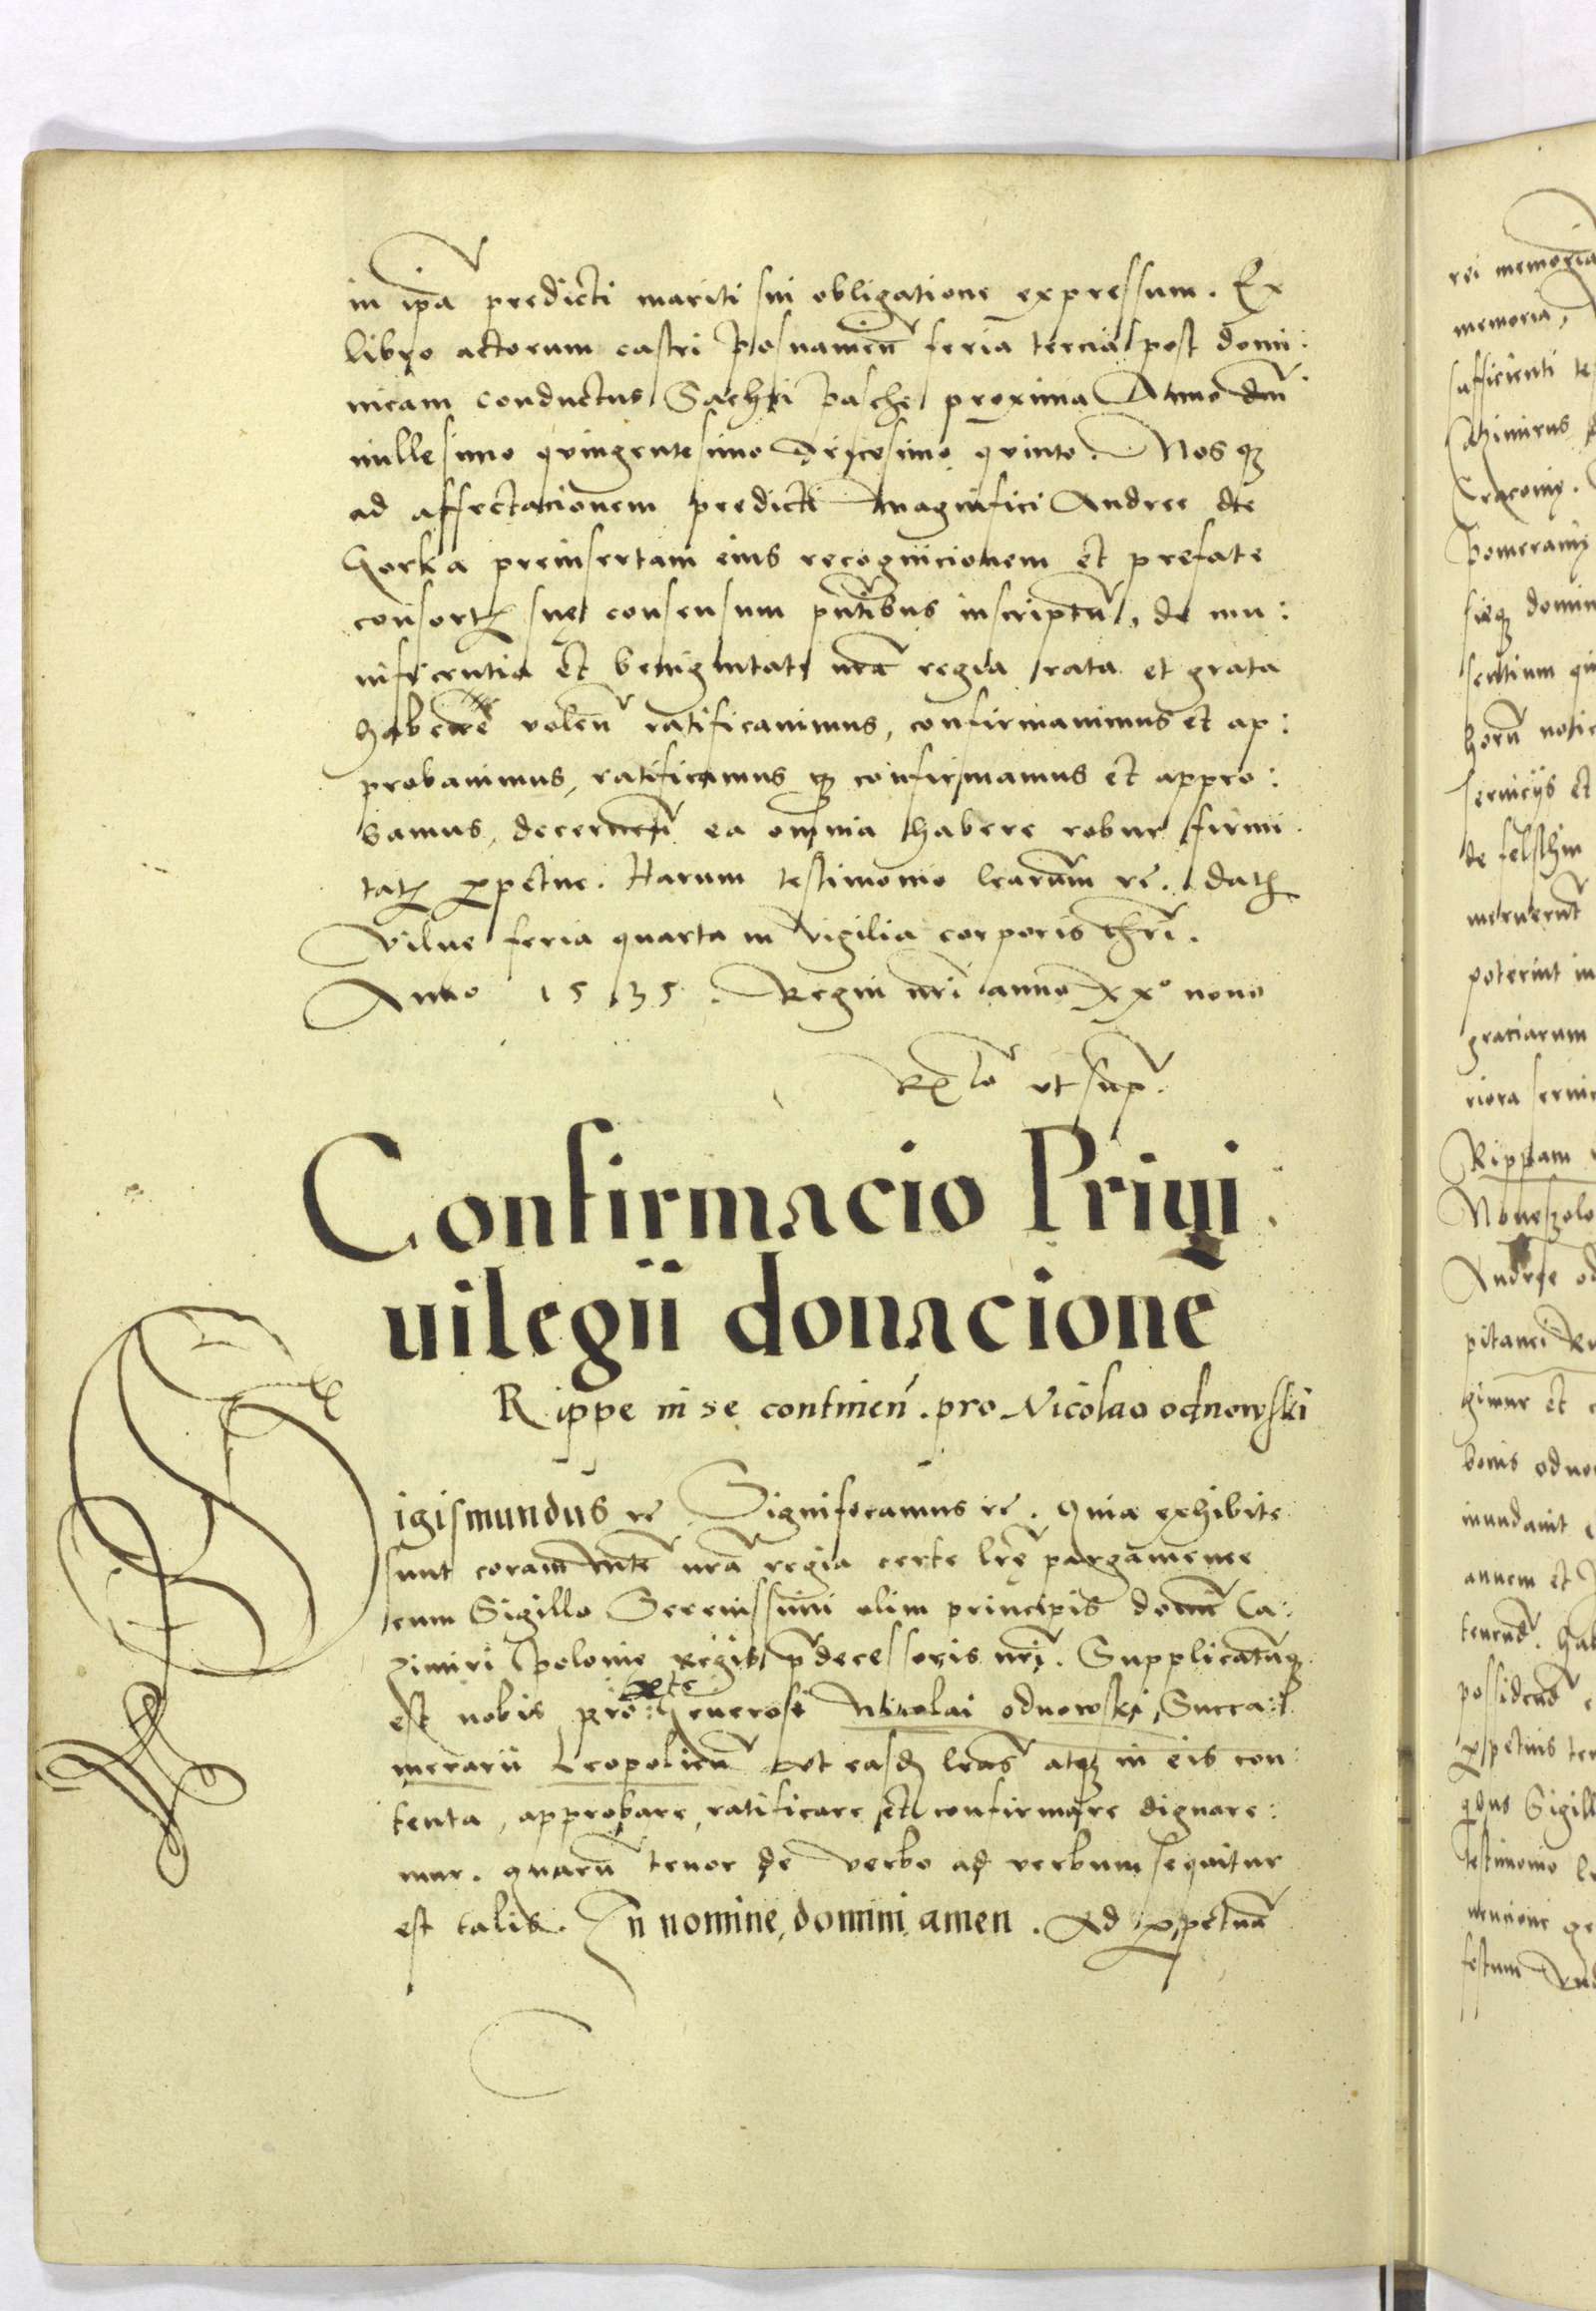 in ip̃a predicti mariti sui obligatione expressum. Ex
libro actorum castri Posnamen̄ feria tercia post domi:
nicam conductus Sachri Pasche proxima Anno dn̄i
millesimo quingentesimo tricesimo quinto. Nosq₃
ad affectacionem predicti magnifici Andree de
Gorka preinsertam eius recognicionem et prefate
consortꝭ sue consensum pn̄tibus inscriptū, de mu:
nificentia et benignitate nr̄a regia rata et grata
habere volen̄ ratificavimus, confirmavimus et ap:
probavimus, ratificamusq₃ confirmamus et appro:
bamus, decernen̄ ea omnia habere robur firmi
tatꝭ ꝑpetue. Harum testimonio lrarum rc̄. datꝭ
Vilne feria quarta in vigilia corporis chr̄i.
Anno 1535. Regni nr̄i anno xxº nono
Rꝭ lo ut sup̄.
Confirmacio Priui
uilegii donacionē
Rippe in se continen̄. pro Nicolao odnowski
Sigismundus rc̄ Significamus rc̄. Quia exhibite
sunt coram Mte nr̄a regia certe lr̄e pargamenee
cum Sigillo Serenissimi olim principis domī Ca:
zimiri Polonie Regis p̄decessoris nr̄i. Supplicatūq₃
est nobis pro ꝑte Generosi Nicolai odnowski, Succa:
merarii Leopolien̄ Ut easdꝫ lr̄as atq₃ in eis con
tenta, approbare, ratificare et confirmare dignare:
mur. quarū tenor de verbo ad verbum sequitur
est talis. In nomine domini amen. Ad ꝑpetuā
rei memoriā
memoria,
sufficienti te
Cracovie.
Pomeranie
sieq₃ domin
sentium qui
horū notic
serviciis et
de felsthin
meruerūt
poterint in
graciarum
riora servic
Rippam
Andree od
pitanei Ru
gimur et
bonis odno
inundavit
annem et
tenend̄. hab
possidend̄
ꝑpetuis te
Sigill
testimonio
festum